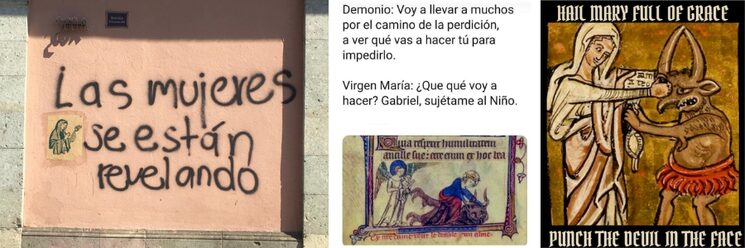 Las mujeres
se están
revelando
Demonio: Voy a llevar a muchos
por el camino de la perdición,
a ver qué vas a hacer tú para
impedirlo.
Virgen María: ¿Que qué voy a
hacer? Gabriel, sujétame al Niño.
humilitatem
ancille sue: ecce enim ex hoc bea
le diable
HAIL MARY FULL OF GRACE
PUNCH THE DEVIL IN THE FACE